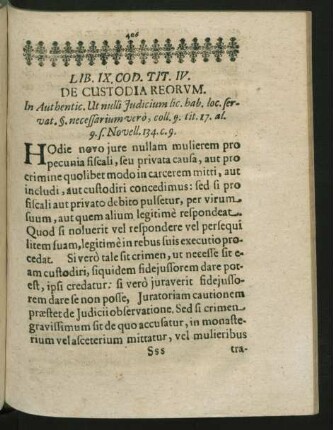 406
LIB. IX. COD. TIT. IV.
DE CUSTODIA REORVM.
In Authentic. Ut nulli Judicium lic. hab. loc. ser-
vat. §. necessarium verò, coll. 9. tit. 17. al.
9. s. Novell. 134. c. 9.
HOdie novo jure nullam mulierem pro
pecunia fiscali, seu privata causa, aut pro
crimine quolibet modo in carcerem mitti, aut
includi, aut custodiri concedimus: sed si pro
fiscali aut privato debito pulsetur, per virum
suum, aut quem alium legitimè respondeat.
Quod si noluerit vel respondere vel persequi
litem suam, legitimè in rebus suis executio pro-
cedat. Si verò tale sit crimen, ut necesse sit e-
am custodiri, siquidem fidejussorem dare pot-
est, ipsi credatur: si verò juraverit fidejusso-
rem dare se non posse, Juratoriam cautionem
præstet de Judicii observatione. Sed si crimen
gravissimum sit de quo accusatur, in monaste-
rium vel asceterium mittatur, vel mulieribus
Sss tra-